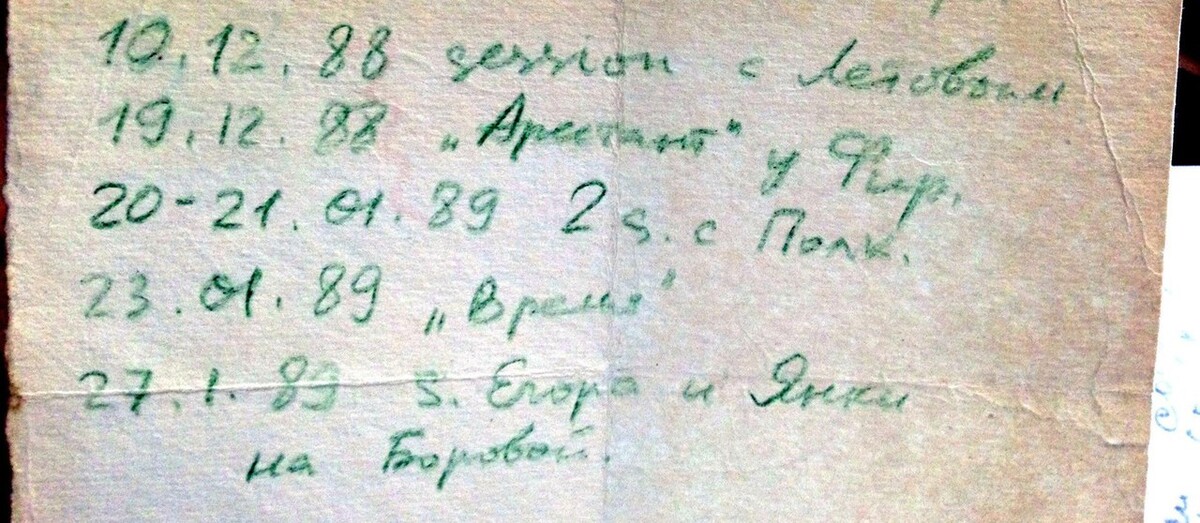 10.12.88 session с Летовым
19.12.88 „Арестант“ у Фир.
20-21.01.89 2 s. с Полк.
23.01.89 „Время“
27.1.89 s. Егора и Янки
на Боровой.